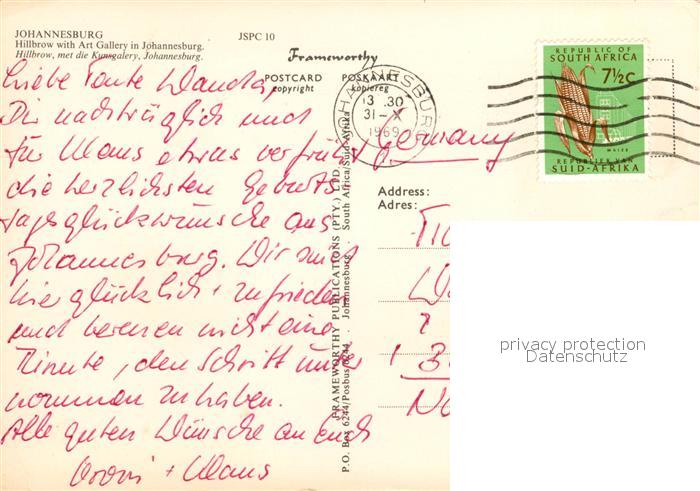 JOHANNESBURG
JSPC 10
Hillbrow with Art Gallery in Johannesburg.
Hillbrow, met die Kunsgalery, Johannesburg.
Frameworthy
POSTCARD POSKAART
copyright kopiereg
JOHANNESBURG
13 30
31-X
1969
REPUBLIC OF
SOUTH AFRICA
7½C
MAIZE
REPUBLIEK VAN
SUID-AFRIKA
Liebe Tante Wanda,
Dir nachträglich und
für Klaus etwas verfrüht
die herzlichsten Geburts
tagsglückwünsche aus
Johannesburg. Wir sind
hier glücklich + zufrieden
und bereuen nicht eine
Minute, den Schritt unter
nommen zu haben.
Alle guten Wünsche an Euch
+ Klaus
Germany
Address:
Adres:
FRAMEWORTHY PUBLICATIONS (PTY.) LTD.
P.O. Box 6244/Posbus 6244 · Johannesburg · South Africa/Suid-Afrika
privacy protection
Datenschutz